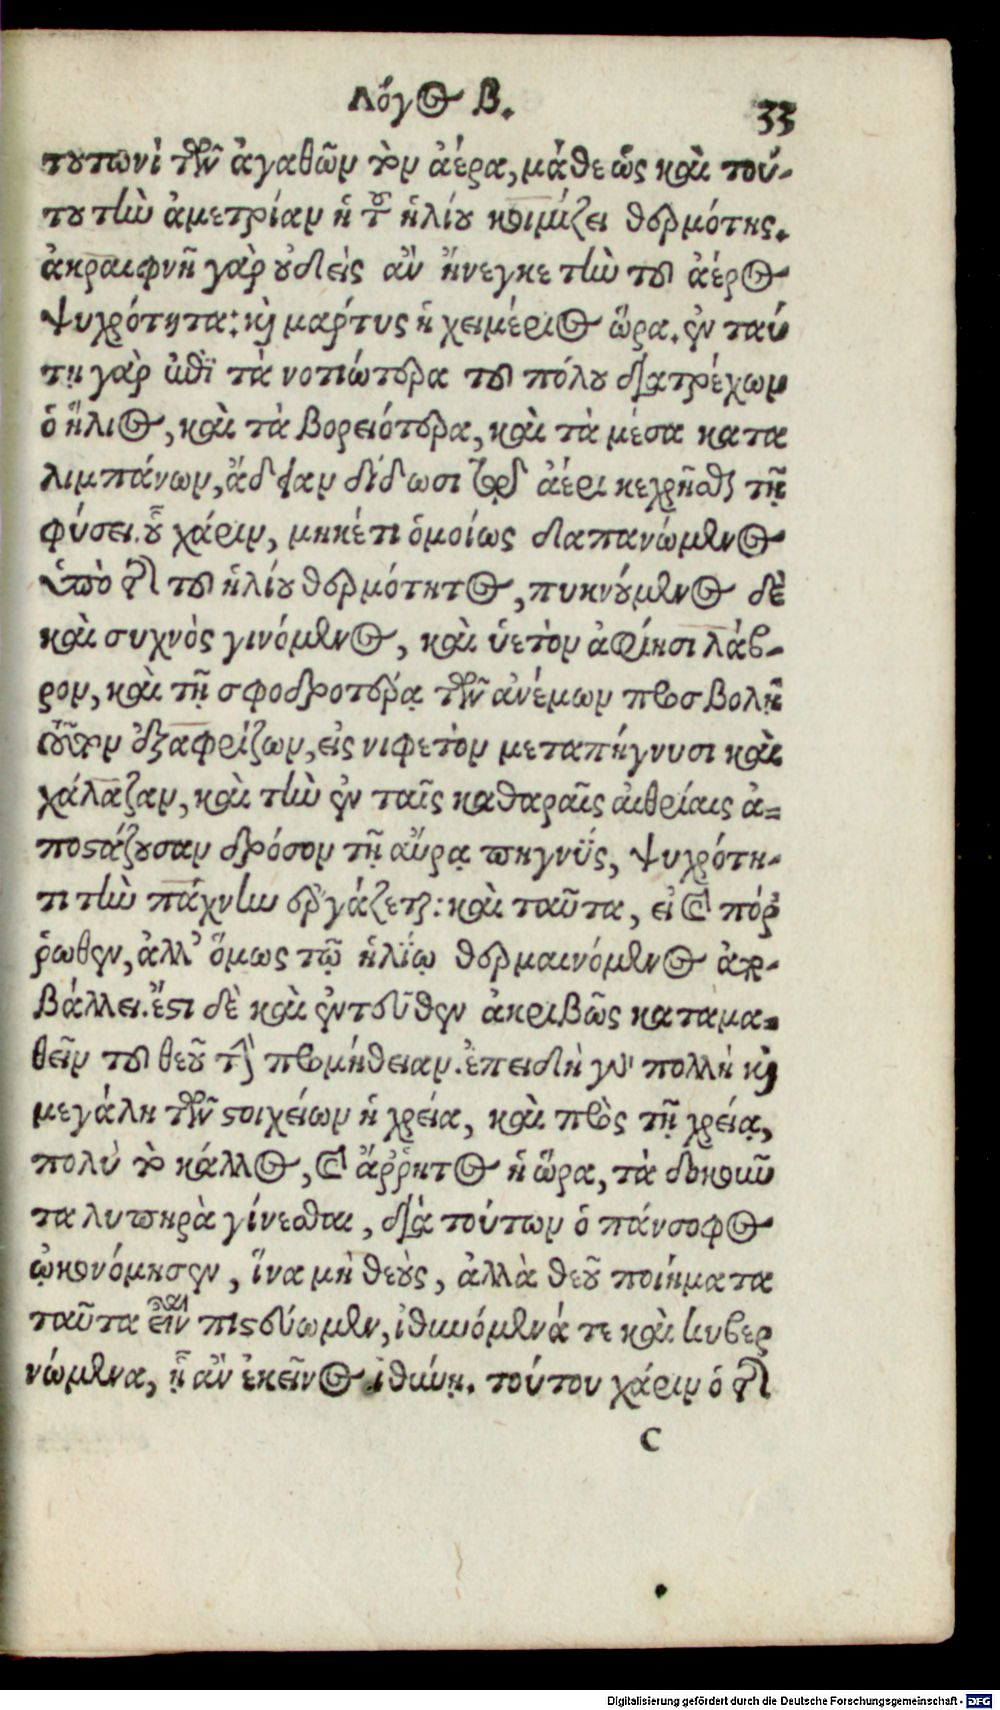 Λόγος β.
33
τουτωνὶ τῶν ἀγαθῶν τὸν ἀέρα, μάθε ὡς καὶ τού-
του τὴν ἀμετρίαν ἡ τοῦ ἡλίου κοιμίζει θερμότης.
ἀκραιφνῆ γὰρ οὐδεὶς ἂν ἤνεγκε τὴν τοῦ ἀέρος
ψυχρότητα: καὶ μάρτυς ἡ χειμέριος ὥρα. ἐν ταύ
τῃ γὰρ ἐπὶ τὰ νοτιώτερα τοῦ πόλου διατρέχων
ὁ ἥλιος, καὶ τὰ βορειότερα, καὶ τὰ μέσα κατα
λιμπάνων, ἄδειαν δίδωσι τῷ ἀέρι κεχρῆσθαι τῇ
φύσει. οὗ χάριν, μηκέτι ὁμοίως δαπανώμενος
ὑπὸ τῆς τοῦ ἡλίου θερμότητος, πυκνούμενος δὲ
καὶ συχνὸς γινόμενος, καὶ ὑετὸν ἀφίησι λάβ-
ρον, καὶ τῇ σφοδροτέρᾳ τῶν ἀνέμων προσβολῇ
τοῦτον ἐξαφρίζων, εἰς νιφετὸν μεταπήγνυσι καὶ
χάλαζαν, καὶ τὴν ἐν ταῖς καθαραῖς αἰθρίαις ἀ-
ποστάζουσαν δρόσον τῇ αὔρᾳ πηγνὺς, ψυχρότη-
τι τὴν πάχνην ἐργάζεται: καὶ ταῦτα, εἰ καὶ πόρ
ῥωθεν, ἀλλ' ὅμως τῷ ἡλίῳ θερμαινόμενος ἀπο-
βάλλει. ἔστι δὲ καὶ ἐντεῦθεν ἀκριβῶς καταμα-
θεῖν τοῦ θεοῦ τὴν προμήθειαν. ἐπειδὴ γὰρ πολλὴ καὶ
μεγάλη τῶν στοιχείων ἡ χρεία, καὶ πρὸς τῇ χρείᾳ,
πολὺ τὸ κάλλος, καὶ ἄῤῥητος ἡ ὥρα, τὰ δοκοῦν
τα λυπηρὰ γίνεσθαι, διὰ τούτων ὁ πάνσοφος
ᾠκονόμησεν, ἵνα μὴ θεοὺς, ἀλλὰ θεοῦ ποιήματα
ταῦτα εἶναι πιστεύωμεν, ἰθυνόμενά τε καὶ κυβερ
νώμενα, ᾗ ἂν ἐκεῖνος ἰθύνῃ. τούτου χάριν ὁ τῆς
C
Digitalisierung gefördert durch die Deutsche Forschungsgemeinschaft - DFG